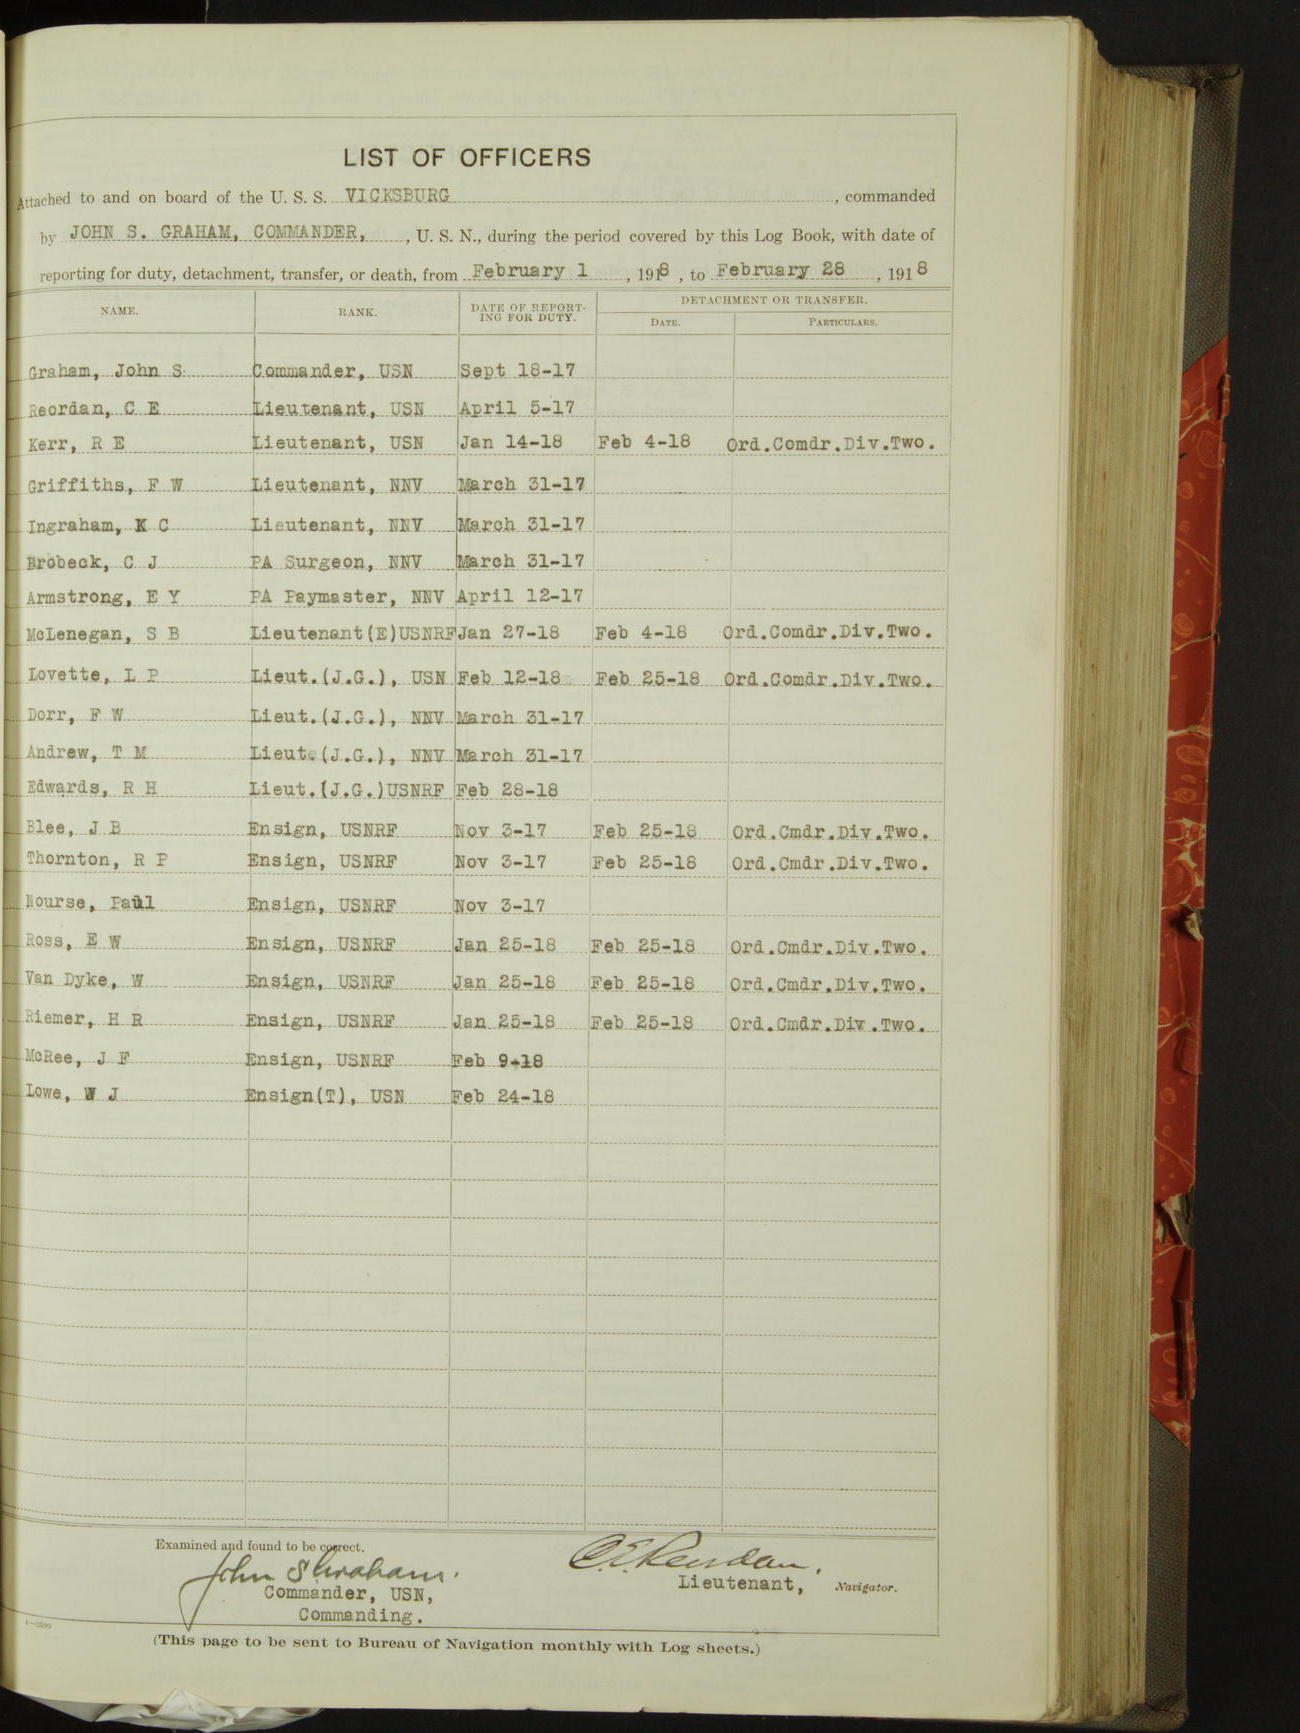 LIST OF OFFICERS
Attached to and on board of the U. S. S. VICKSBURG , commanded
by JOHN S. GRAHAM, COMMANDER, , U. S. N., during the period covered by this Log Book, with date of
reporting for duty, detachment, transfer, or death, from February 1 , 1918 , to February 28 , 1918
NAME. RANK. DATE OF REPORT- ING FOR DUTY. DETACHMENT OR TRANSFER.
DATE. PARTICULARS.
Graham, John S. Commander, USN Sept 18-17
Reordan, C E Lieutenant, USN April 5-17
Kerr, R E Lieutenant, USN Jan 14-18 Feb 4-18 Ord.Comdr.Div.Two.
Griffiths, F W Lieutenant, NNV March 31-17
Ingraham, K C Lieutenant, NNV March 31-17
Brobeck, C J PA Surgeon, NNV March 31-17
Armstrong, E Y PA Paymaster, NNV April 12-17
McLenegan, S B Lieutenant(E)USNRF Jan 27-18 Feb 4-18 Ord.Comdr.Div.Two.
Lovette, L P Lieut.(J.G.), USN Feb 12-18 Feb 25-18 Ord.Comdr.Div.Two.
Dorr, F W Lieut.(J.G.), NNV March 31-17
Andrew, T M Lieut.(J.G.), NNV March 31-17
Edwards, R H Lieut.(J.G.)USNRF Feb 28-18
Blee, J B Ensign, USNRF Nov 3-17 Feb 25-18 Ord.Cmdr.Div.Two.
Thornton, R P Ensign, USNRF Nov 3-17 Feb 25-18 Ord.Cmdr.Div.Two.
Nourse, Paul Ensign, USNRF Nov 3-17
Ross, E W Ensign, USNRF Jan 25-18 Feb 25-18 Ord.Cmdr.Div.Two.
Van Dyke, W Ensign, USNRF Jan 25-18 Feb 25-18 Ord.Cmdr.Div.Two.
Riemer, H R Ensign, USNRF Jan 25-18 Feb 25-18 Ord.Cmdr.Div.Two.
McRee, J F Ensign, USNRF Feb 9-18
Lowe, W J Ensign(T), USN Feb 24-18
Examined and found to be correct.
John S Graham. C.E. Reordan.
Commander, USN, Lieutenant, Navigator.
Commanding.
(This page to be sent to Bureau of Navigation monthly with Log sheets.)